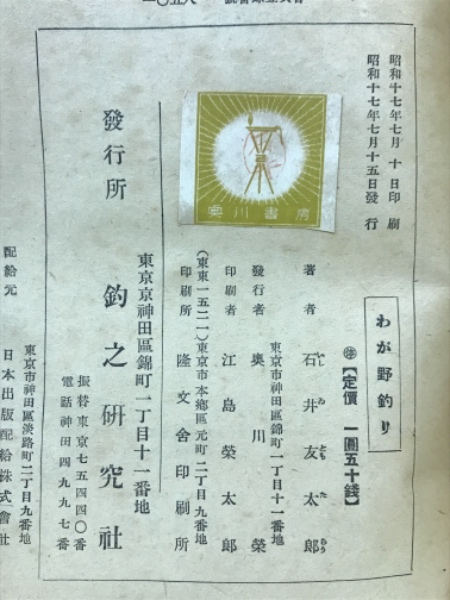 昭和十七年七月 十日印刷
昭和十七年七月十五日發行
わが野釣り
【定價 一圓五十錢】
著者 石井友太郎
東京市神田區錦町一丁目十一番地
發行者 奥川榮
印刷者 江島榮太郎
(東東一五二一)東京市本鄕區元町二丁目九番地
印刷所 隆文舍印刷所
奥川書房
發行所
東京京神田區錦町一丁目十一番地
釣之硏究社
振替東京七五四四〇番
電話神田四九九七番
配給元
東京市神田區淡路町二丁目九番地
日本出版配給株式會社